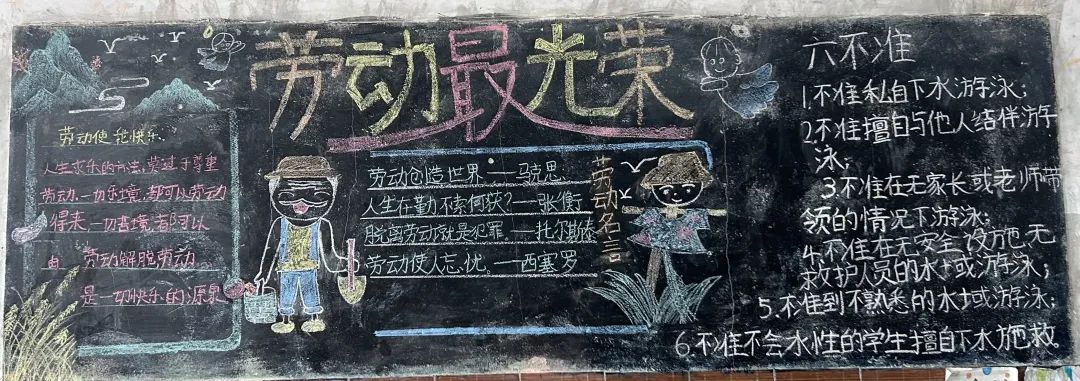 劳动最光荣
劳动使 快乐
人生求乐的方法,莫过于尊重
劳动.一切乐境,都可以劳动
得来,一切苦境,都可以
由 劳动解脱劳动
是一切快乐的源泉
劳动创造世界——马克思
人生在勤不索何获?——张衡
脱离劳动就是犯罪.——托尔斯泰
劳动使人忘忧.——西塞罗
劳动名言
六不准
1.不准私自下水游泳;
2.不准擅自与他人结伴游
泳;
3.不准在无家长或老师带
领的情况下游泳;
4.不准在无安全设施,无
救护人员的水域游泳;
5.不准到不熟悉的水域游泳;
6.不准不会水性的学生擅自下水施救.